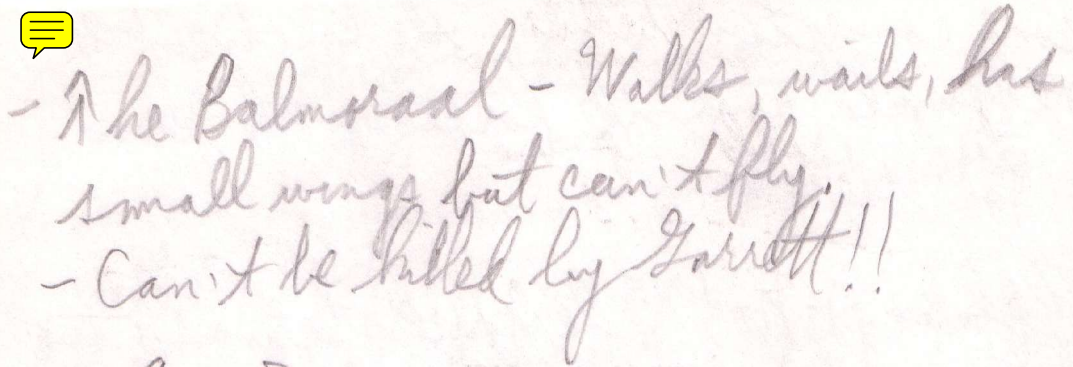 - The Balmoraal - Walks, wails, has
small wings but can't fly.
- Can't be killed by Garrett!!